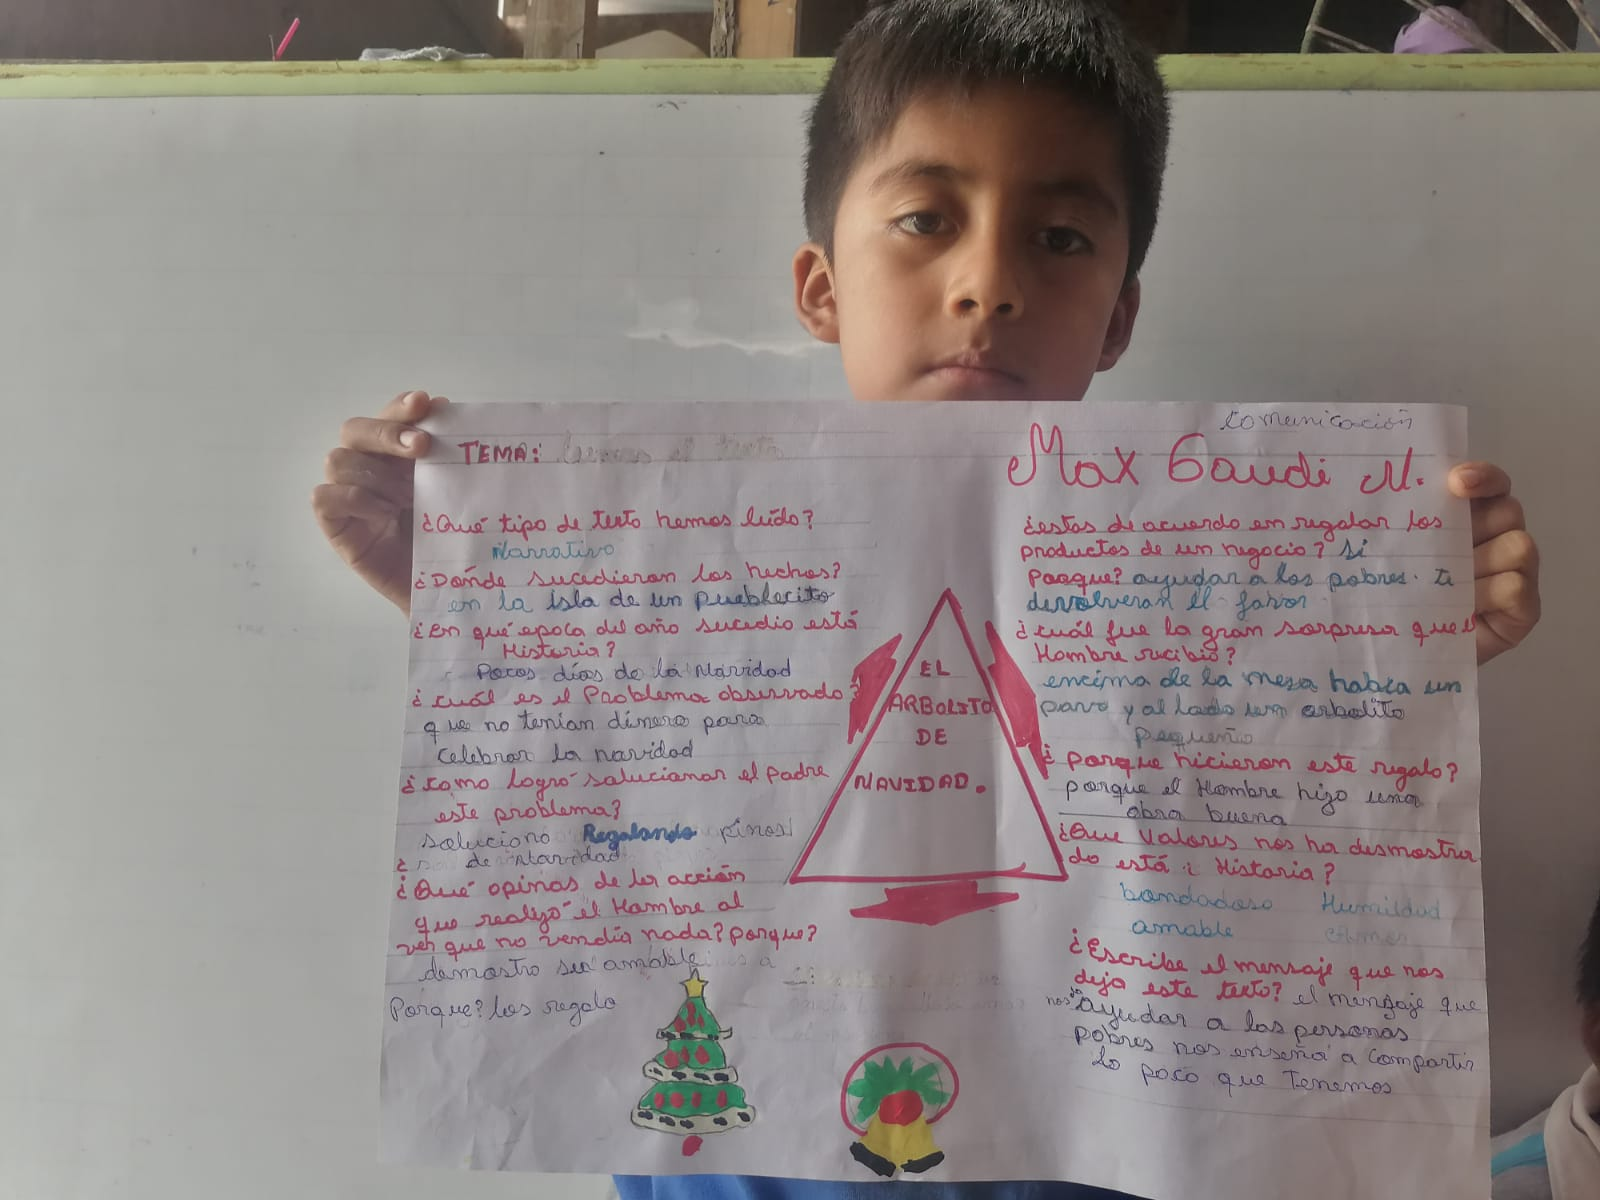 Comunicación
TEMA: Leemos el texto
Max Gaudi M.
¿Qué tipo de texto hemos leído?
Narrativo
¿Dónde sucedieron los hechos?
en la isla de un pueblecito
¿En qué epoca del año sucedio está
Historia?
Pocos días de la Navidad
¿cuál es el Problema observado?
que no tenían dinero para
celebrar la navidad
¿como logró solucionar el padre
este problema?
solucionó Regalando pinos
¿ de Navidad
¿Qué opinas de la acción
que realizó el Hombre al
ver que no vendía nada? porque?
demostro ser amable
Porque? los regalo
EL
ARBOLITO
DE
NAVIDAD.
¿estas de acuerdo en regalar los
productos de un negocio? si
porque? ayudar a los pobres. te
devolveran el favor
¿cuál fue la gran sorpresa que el
Hombre recibió?
encima de la mesa había un
pavo y al lado un arbolito
pequeño
¿porque hicieron este regalo?
porque el Hombre hizo una
obra buena
¿Que valores nos ha desmostra
do está Historia?
bondadoso Humildad
amable Amor
¿Escribe el mensaje que nos
dejo este texto? el mensaje que
nos da ayudar a las personas
pobres nos enseña a compartir
Lo poco que Tenemos